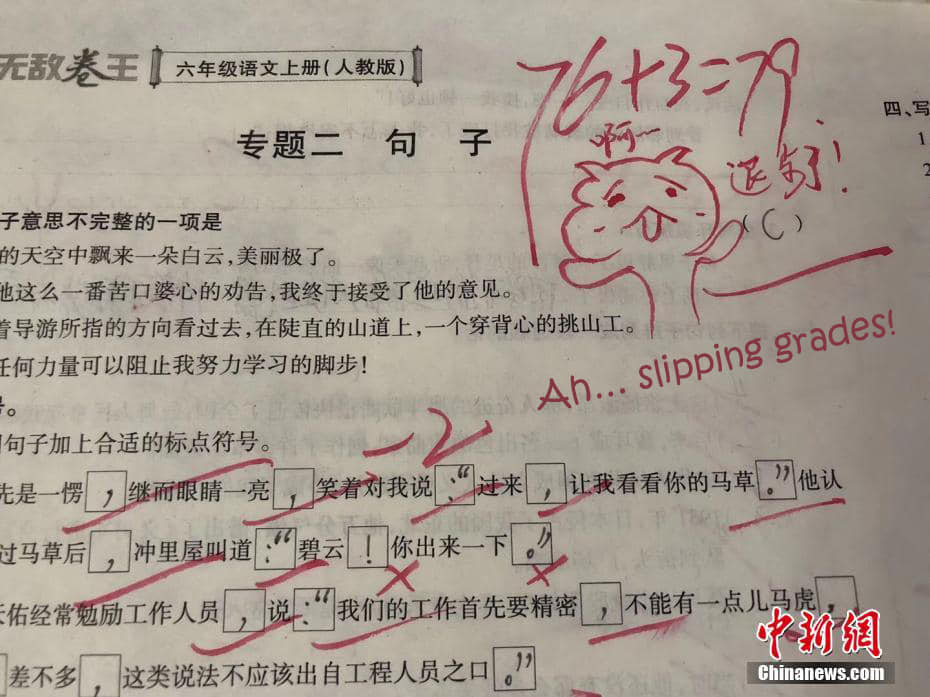 无敌卷王 六年级语文上册(人教版)
76+3=79
专题二 句 子
啊
退步了!
四、写
1
2
子意思不完整的一项是 (C)
的天空中飘来一朵白云,美丽极了。
他这么一番苦口婆心的劝告,我终于接受了他的意见。
着导游所指的方向看过去,在陡直的山道上,一个穿背心的挑山工。
任何力量可以阻止我努力学习的脚步!
Ah... slipping grades!
号。
句子加上合适的标点符号。
-2
先是一愣,继而眼睛一亮,笑着对我说:“过来,让我看看你的马草。”他认
过马草后,冲里屋叫道:“碧云!你出来一下。”
天佑经常勉励工作人员,说:“我们的工作首先要精密,不能有一点儿马虎,
差不多,这类说法不应该出自工程人员之口。”
中新网
Chinanews.com